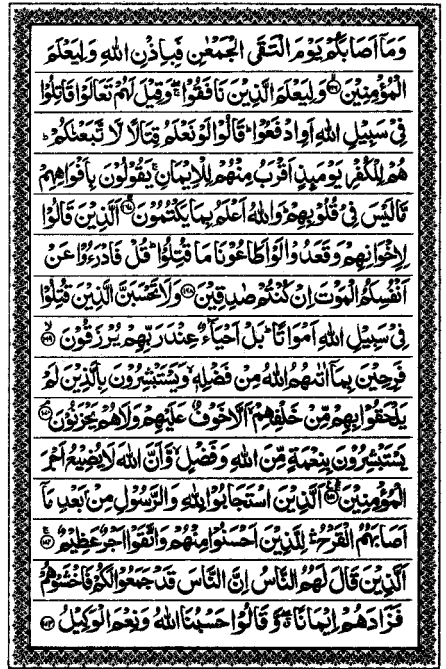 وَمَآ اَصَابَكُمۡ يَوۡمَ الۡتَقَى الۡجَمۡعٰنِ فَبِاِذۡنِ اللّٰهِ وَلِيَعۡلَمَ
الۡمُؤۡمِنِيۡنَۙ‏ ﴿۱۶۶﴾ وَلِيَعۡلَمَ الَّذِيۡنَ نَافَقُوۡا ۖۚ وَقِيۡلَ لَهُمۡ تَعَالَوۡا قَاتِلُوۡا
فِىۡ سَبِيۡلِ اللّٰهِ اَوِ ادۡفَعُوۡا ۚ قَالُوۡا لَوۡ نَعۡلَمُ قِتَالًا لَّا تَّبَعۡنٰكُمۡ ؕ
هُمۡ لِلۡكُفۡرِ يَوۡمَئِذٍ اَقۡرَبُ مِنۡهُمۡ لِلۡاِيۡمَانِ ۚ يَقُوۡلُوۡنَ بِاَفۡوَاهِهِمۡ
مَّا لَيۡسَ فِىۡ قُلُوۡبِهِمۡ ؕ وَاللّٰهُ اَعۡلَمُ بِمَا يَكۡتُمُوۡنَۚ‏ ﴿۱۶۷﴾ اَلَّذِيۡنَ قَالُوۡا
لِاِخۡوَانِهِمۡ وَقَعَدُوۡا لَوۡ اَطَاعُوۡنَا مَا قُتِلُوۡا ؕ قُلۡ فَادۡرَءُوۡا عَنۡ
اَنۡفُسِكُمُ الۡمَوۡتَ اِنۡ كُنۡتُمۡ صٰدِقِيۡنَ‏ ﴿۱۶۸﴾ وَلَا تَحۡسَبَنَّ الَّذِيۡنَ قُتِلُوۡا
فِىۡ سَبِيۡلِ اللّٰهِ اَمۡوَاتًا ؕ بَلۡ اَحۡيَآءٌ عِنۡدَ رَبِّهِمۡ يُرۡزَقُوۡنَۙ‏ ﴿۱۶۹﴾
فَرِحِيۡنَ بِمَاۤ اٰتٰٮهُمُ اللّٰهُ مِنۡ فَضۡلِهٖ ۙ وَيَسۡتَبۡشِرُوۡنَ بِالَّذِيۡنَ لَمۡ
يَلۡحَقُوۡا بِهِمۡ مِّنۡ خَلۡفِهِمۡ ۙ اَلَّا خَوۡفٌ عَلَيۡهِمۡ وَلَا هُمۡ يَحۡزَنُوۡنَۘ‏ ﴿۱۷۰﴾
يَسۡتَبۡشِرُوۡنَ بِنِعۡمَةٍ مِّنَ اللّٰهِ وَفَضۡلٍ ۙ وَّاَنَّ اللّٰهَ لَا يُضِيۡعُ اَجۡرَ
الۡمُؤۡمِنِيۡنَ‏ ﴿۱۷۱﴾ اَلَّذِيۡنَ اسۡتَجَابُوۡا لِلّٰهِ وَالرَّسُوۡلِ مِنۡۢ بَعۡدِ مَاۤ
اَصَابَهُمُ الۡقَرۡحُ ۛؕ لِلَّذِيۡنَ اَحۡسَنُوۡا مِنۡهُمۡ وَاتَّقَوۡا اَجۡرٌ عَظِيۡمٌۚ‏ ﴿۱۷۲﴾
اَلَّذِيۡنَ قَالَ لَهُمُ النَّاسُ اِنَّ النَّاسَ قَدۡ جَمَعُوۡا لَكُمۡ فَاخۡشَوۡهُمۡ
فَزَادَهُمۡ اِيۡمَانًا ۖۗ وَّقَالُوۡا حَسۡبُنَا اللّٰهُ وَنِعۡمَ الۡوَكِيۡلُ‏ ﴿۱۷۳﴾